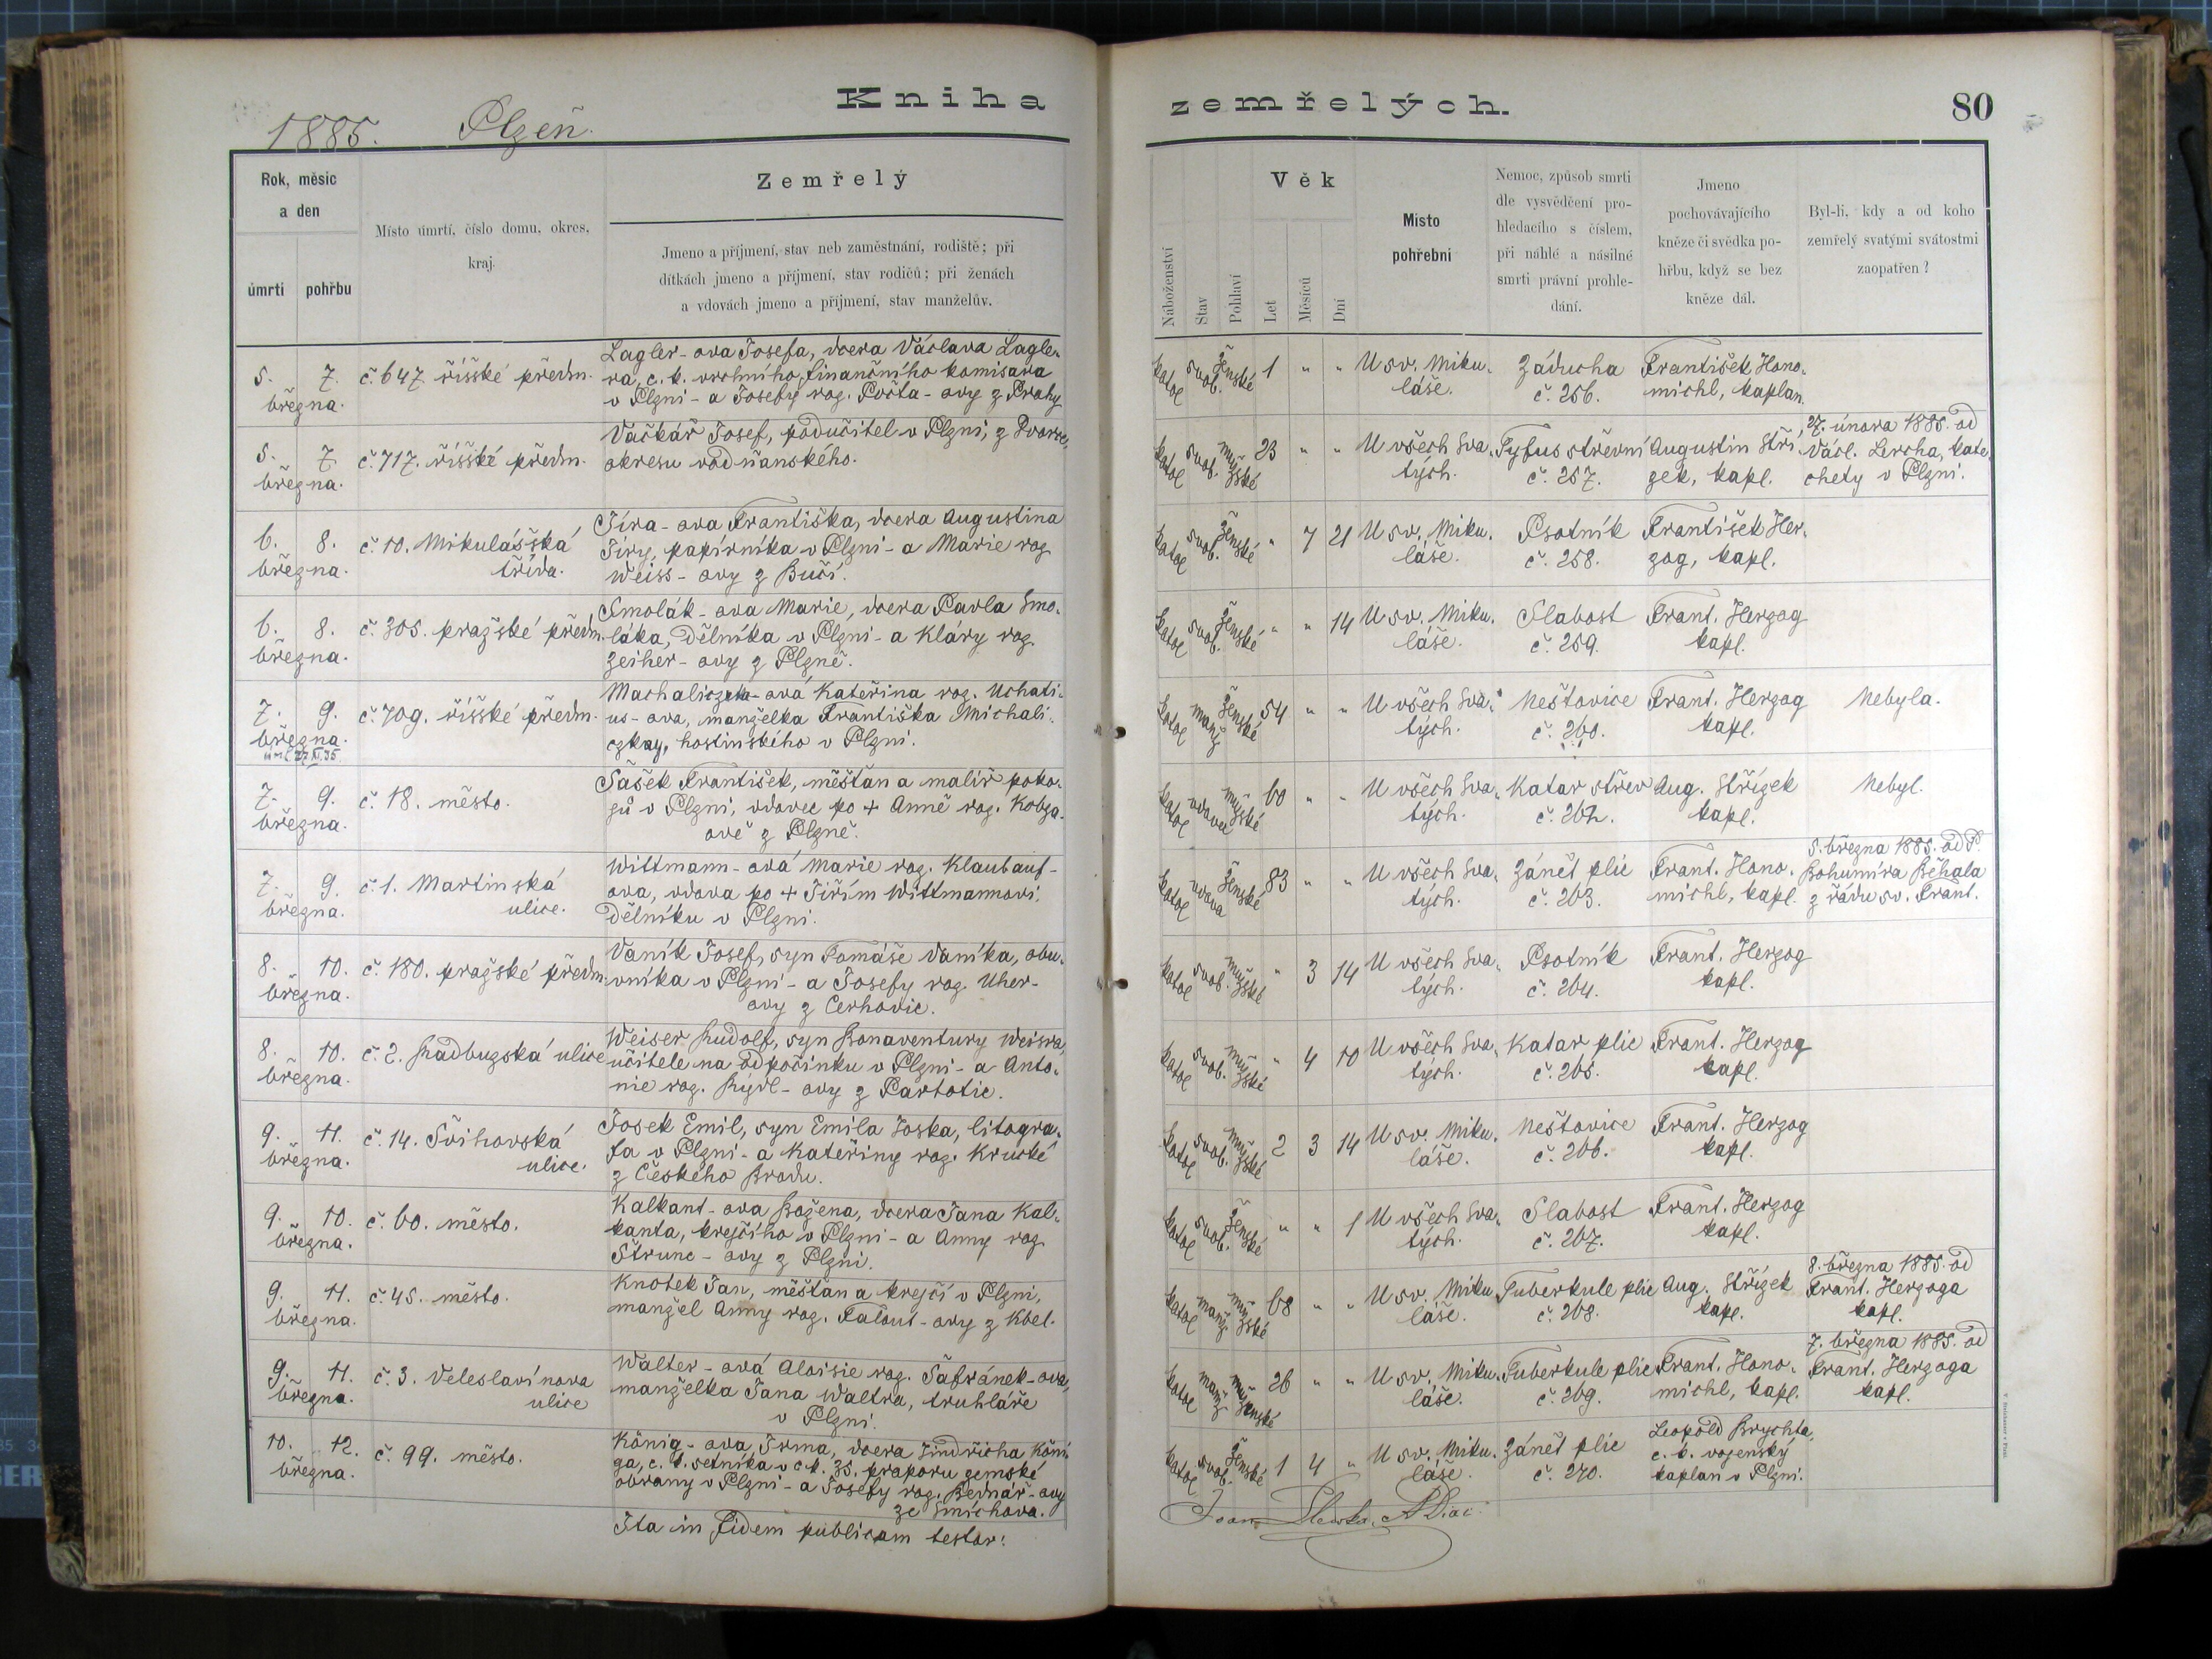 Kniha
1885. Plzeň.
Rok, měsíc
a den
úmrtí
pohřbu
Místo úmrtí, číslo domu, okres,
kraj.
Zemřelý
Jmeno a příjmení, stav neb zaměstnání, rodiště; při
dítkách jmeno a příjmení, stav rodičů; při ženách
a vdovách jmeno a příjmení, stav manželův.
5. 7.
března.
č. 647 říšské předm.
Lagler-ova Josefa, dcera Václava Lagle-
ra, c. k. vrchního finančního komisara
v Plzni - a Josefy roz. Počta-ovy z Prahy
5. 7.
března.
č. 717. říšské předm.
Vačkář Josef, podučitel v Plzni, z Dvorce,
okresu vodňanského.
6. 8.
března.
č. 10. Mikulášská
třída.
Jíra-ova Františka, dcera Augustina
Jíry, papírníka v Plzni - a Marie roz.
Weiss-ovy z Bučí.
6. 8.
března.
č. 305. pražské předm.
Smolák-ova Marie, dcera Pavla Smo-
láka, dělníka v Plzni - a Kláry roz.
Zeiher-ovy z Plzně.
7. 9.
března.
č. 709. říšské předm.
Machaliczka-ová Kateřina roz. Uchati-
us-ova, manželka Františka Michali-
czkay, hostinského v Plzni.
7. 9.
března.
č. 18. město.
Šašek František, měšťan a malíř poko-
jů v Plzni, vdovec po + Anně roz. Kobza-
ově z Plzně.
7. 9.
března.
č. 1. Martinská
ulice.
Wittmann-ová Marie roz. Klaubauf-
ova, vdova po + Jiřím Wittmannovi,
dělníku v Plzni.
8. 10.
března.
č. 180. pražské předm.
Vaník Josef, syn Tomáše Vaníka, obu-
vníka v Plzni - a Josefy roz. Uher-
ovy z Cerhovic.
8. 10.
března.
č. 2. Radbuzská ulice
Weiser Rudolf, syn Bonaventury Weisra,
učitele na odpočinku v Plzni - a Anto-
nie roz. Rýdl-ovy z Partotic.
9. 11.
března.
č. 14. Švihovská
ulice.
Josek Emil, syn Emila Joska, litogra-
fa v Plzni - a Kateřiny roz. Krucké
z Českého Brodu.
9. 10.
března.
č. 60. město.
Kalkant-ova Božena, dcera Jana Kal-
kanta, krejčího v Plzni - a Anny roz.
Štrunc-ovy z Plzni.
9. 11.
března.
č. 45. město.
Knotek Jan, měšťan a krejčí v Plzni,
manžel Anny roz. Falout-ovy z Kbel.
9. 11.
března.
č. 3. Veleslavínova
ulice
Walter-ová Aloisie roz. Šafránek-ova,
manželka Jana Waltra, truhláře
v Plzni.
10. 12.
března.
č. 99. město.
König-ova Irma, dcera Jindřicha Köni-
ga, c. k. setníka v c. k. 35. praporu zemské
obrany v Plzni - a Josefy roz. Bednář-ovy
ze Smíchova.
Ita in fidem publicam testor:
zemřelých.
80
Náboženství
Stav
Pohlaví
Věk
Let
Měsíců
Dní
Místo
pohřební
Nemoc, způsob smrti
dle vysvědčení pro-
hledacího s číslem,
při náhlé a násilné
smrti právní prohle-
dání.
Jmeno
pochovávajícího
kněze či svědka po-
hřbu, když se bez
kněze dál.
Byl-li, kdy a od koho
zemřelý svatými svátostmi
zaopatřen?
katol svob. ženské 1 " " U sv. Miku-
láše.
Záducha
č. 256.
František Hono-
michl, kaplan.
katol svob. mužské 23 " " U všech Sva-
tých.
Tyfus střevní
č. 257.
Augustin Stří-
zek, kapl.
27. února 1885. od
Václ. Lercha, kate-
chety v Plzni.
katol svob. ženské " 7 21 U sv. Miku-
láše.
Psotník
č. 258.
František Her-
zog, kapl.
katol svob. ženské " " 14 U sv. Miku-
láše.
Slabost
č. 259.
Frant. Herzog
kapl.
katol manž ženské 54 " " U všech Sva-
tých.
Neštovice
č. 260.
Frant. Herzog
kapl.
Nebyla.
katol vdovec mužské 60 " " U všech Sva-
tých.
Katar střev
č. 262.
Aug. Střízek
kapl.
Nebyl.
katol vdova ženské 83 " " U všech Sva-
tých.
Zánět plic
č. 263.
Frant. Hono-
michl, kapl.
5. března 1885. od P.
Bohumíra Běhala
z řádu sv. Frant.
katol svob. mužské " 3 14 U všech Sva-
tých.
Psotník
č. 264.
Frant. Herzog
kapl.
katol svob. mužské " 4 10 U všech Sva-
tých.
Katar plic
č. 265.
Frant. Herzog
kapl.
katol svob. mužské 2 3 14 U sv. Miku-
láše.
Neštovice
č. 266.
Frant. Herzog
kapl.
katol svob. ženské " " 1 U všech Sva-
tých.
Slabost
č. 267.
Frant. Herzog
kapl.
katol manž mužské 68 " " U sv. Miku-
láše.
Tuberkule plic
č. 268.
Aug. Střízek
kapl.
8. března 1885. od
Frant. Herzoga
kapl.
katol manž ženské 26 " " U sv. Miku-
láše.
Tuberkule plic
č. 269.
Frant. Hono-
michl, kapl.
7. března 1885. od
Frant. Herzoga
kapl.
katol svob. ženské 1 4 " U sv. Miku-
láše.
Zánět plic
č. 270.
Leopold Brychta,
c. k. vojenský
kaplan v Plzni.